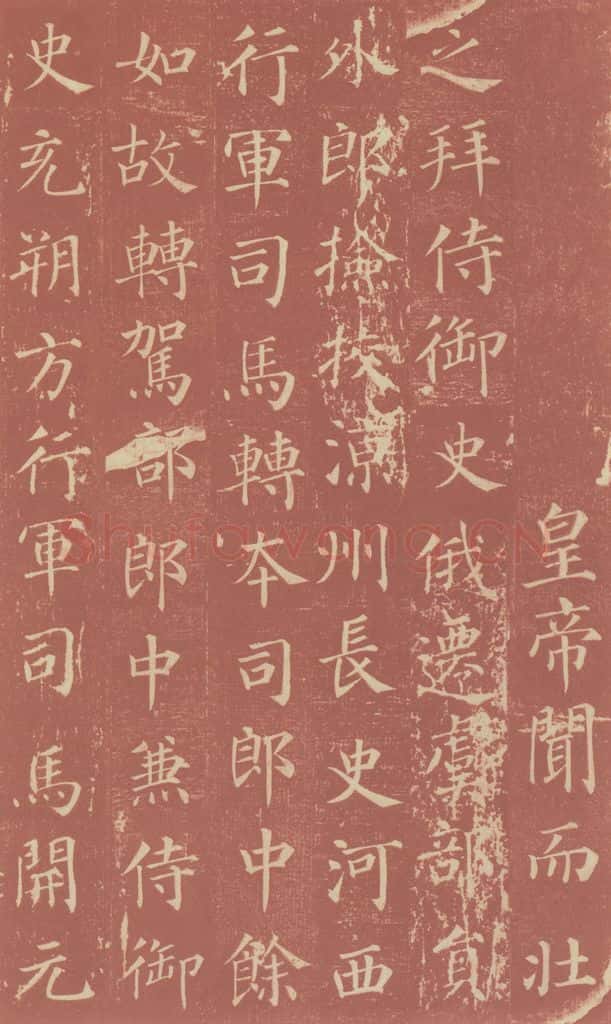 皇帝聞而壯
之拜侍御史俄遷虞部員
外郎撿挍涼州長史河西
行軍司馬轉本司郎中餘
如故轉駕部郎中兼侍御
史充朔方行軍司馬開元
Shufawang.CN